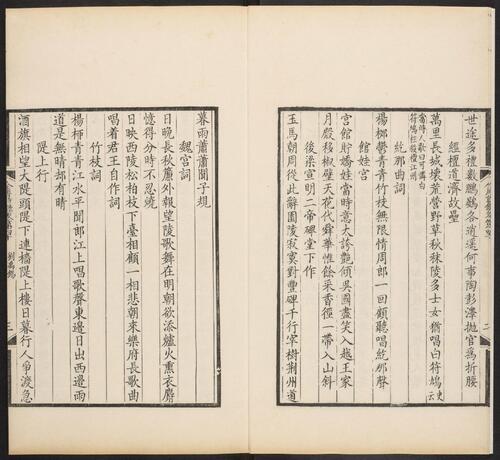 世途多禮數鵬鷃各逍遙何事陶彭澤拋官爲折腰
經檀道濟故壘
萬里長城壞荒營野草秋秣陵多士女猶唱白符鳩史云
當時人歌曰可憐白符鳩枉殺檀江州
紇那曲詞
楊柳鬱青青竹枝無限情周郎一回顧聽唱紇那聲
館娃宮
宮館貯嬌娃當時意大誇艷傾吳國盡笑入越王家
月殿移椒壁天花代舜華惟餘采香徑一帶入山斜
後梁宣明二帝碑堂下作
玉馬朝周從此辭園陵寂寞對豐碑千行宰樹荊州道
二
暮雨蕭蕭聞子規
魏宮詞
日晚長秋簾外報望陵歌舞在明朝欲添爐火熏衣麝
憶得分時不忍燒
日映西陵松柏枝下臺相顧一相悲朝來樂府長歌曲
唱着君王自作詞
竹枝詞
楊柳青青江水平聞郎江上唱歌聲東邊日出西邊雨
道是無晴却有晴
隄上行
酒旗相望大隄頭隄下連檣隄上樓日暮行人爭渡急
劉禹錫
三